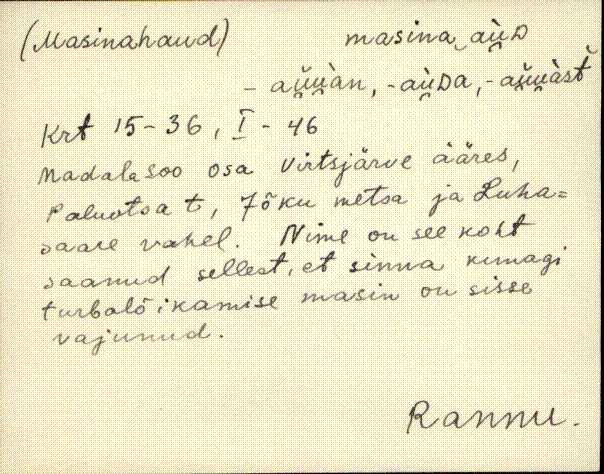 (Masinahaud) masina‿aù̯D
- aŭ̯u̯àn, -aù̯Da, -aŭ̯u̯àst̆
Krt 15-36, I - 46
Madala soo osa Virtsjärve ääres,
Paluotsa t, Jõku metsa ja Luha=
saare vahel. Nime on see koht
saanud sellest, et sinna kunagi
turbalõikamise masin on sisse
vajunud.
Rannu.